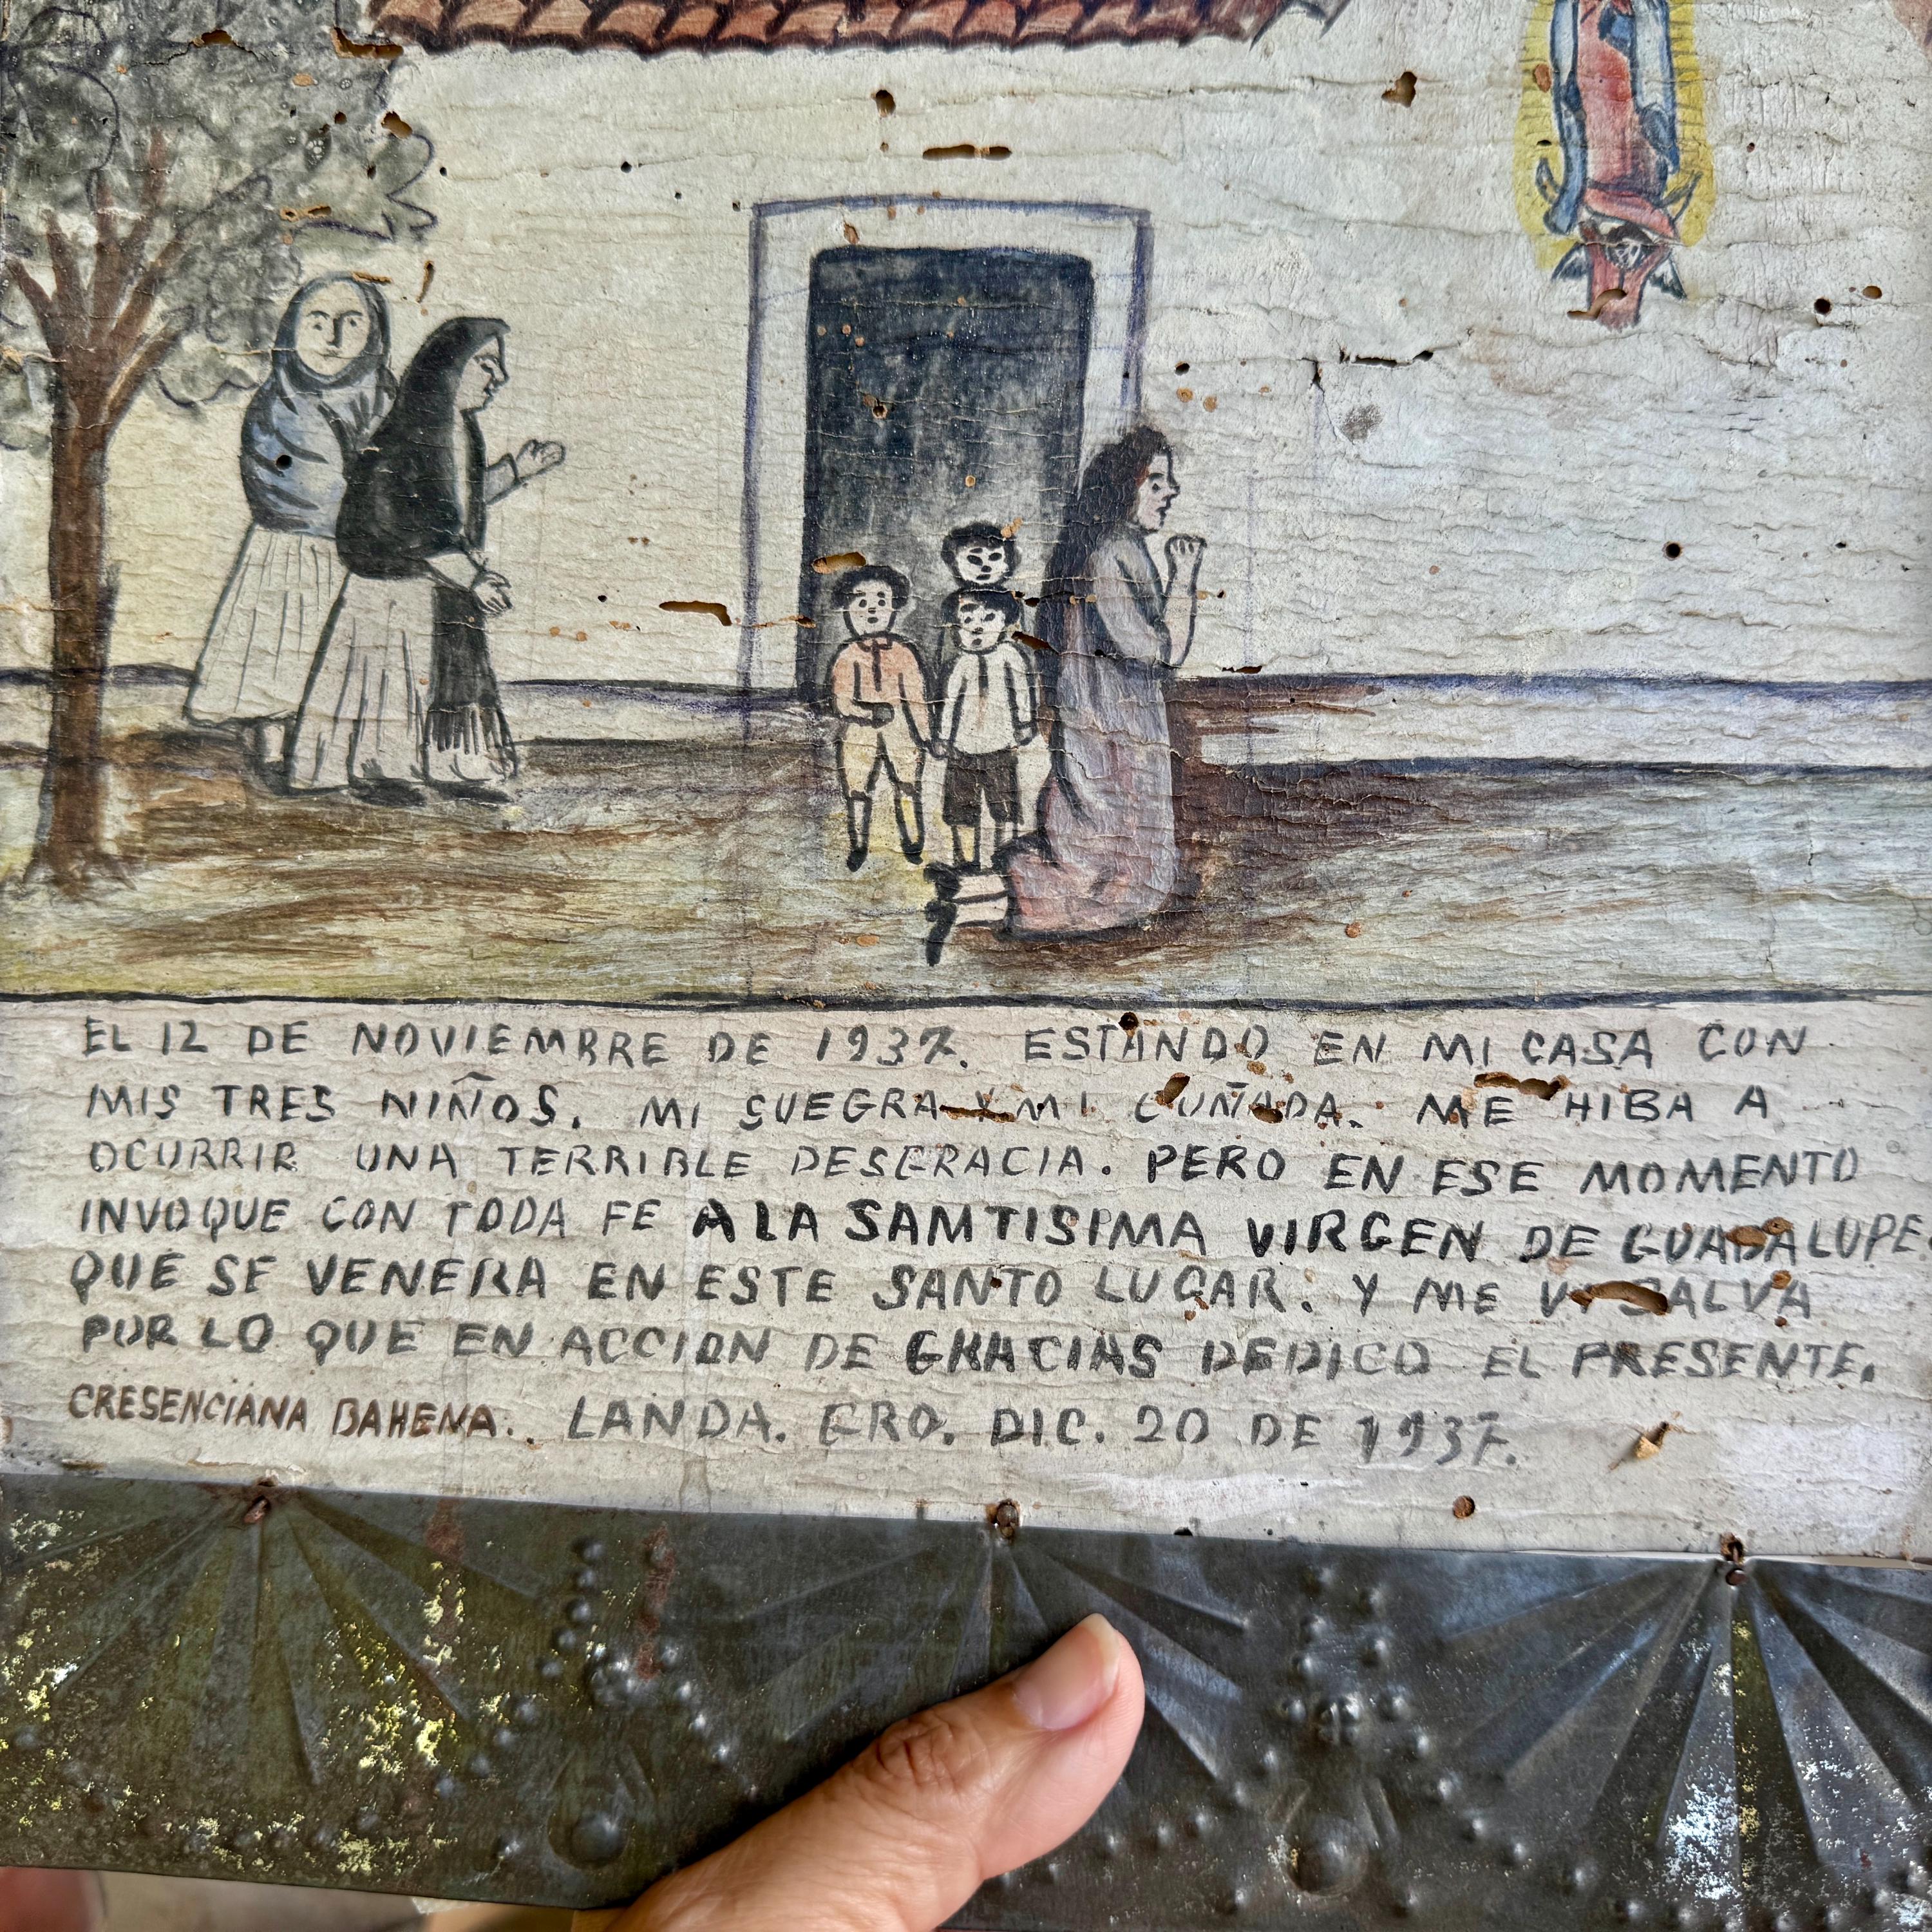 EL 12 DE NOVIEMBRE DE 1937. ESTANDO EN MI CASA CON
MIS TRES NIÑOS. MI SUEGRA Y MI CUÑADA. ME HIBA A
OCURRIR UNA TERRIBLE DESGRACIA. PERO EN ESE MOMENTO
INVOQUE CON TODA FE A LA SAMTISIMA VIRGEN DE GUADALUPE.
QUE SE VENERA EN ESTE SANTO LUGAR. Y ME VI SALVA
POR LO QUE EN ACCION DE GRACIAS DEDICO EL PRESENTE.
CRESENCIANA BAHENA.. LANDA. GRO. DIC. 20 DE 1937.